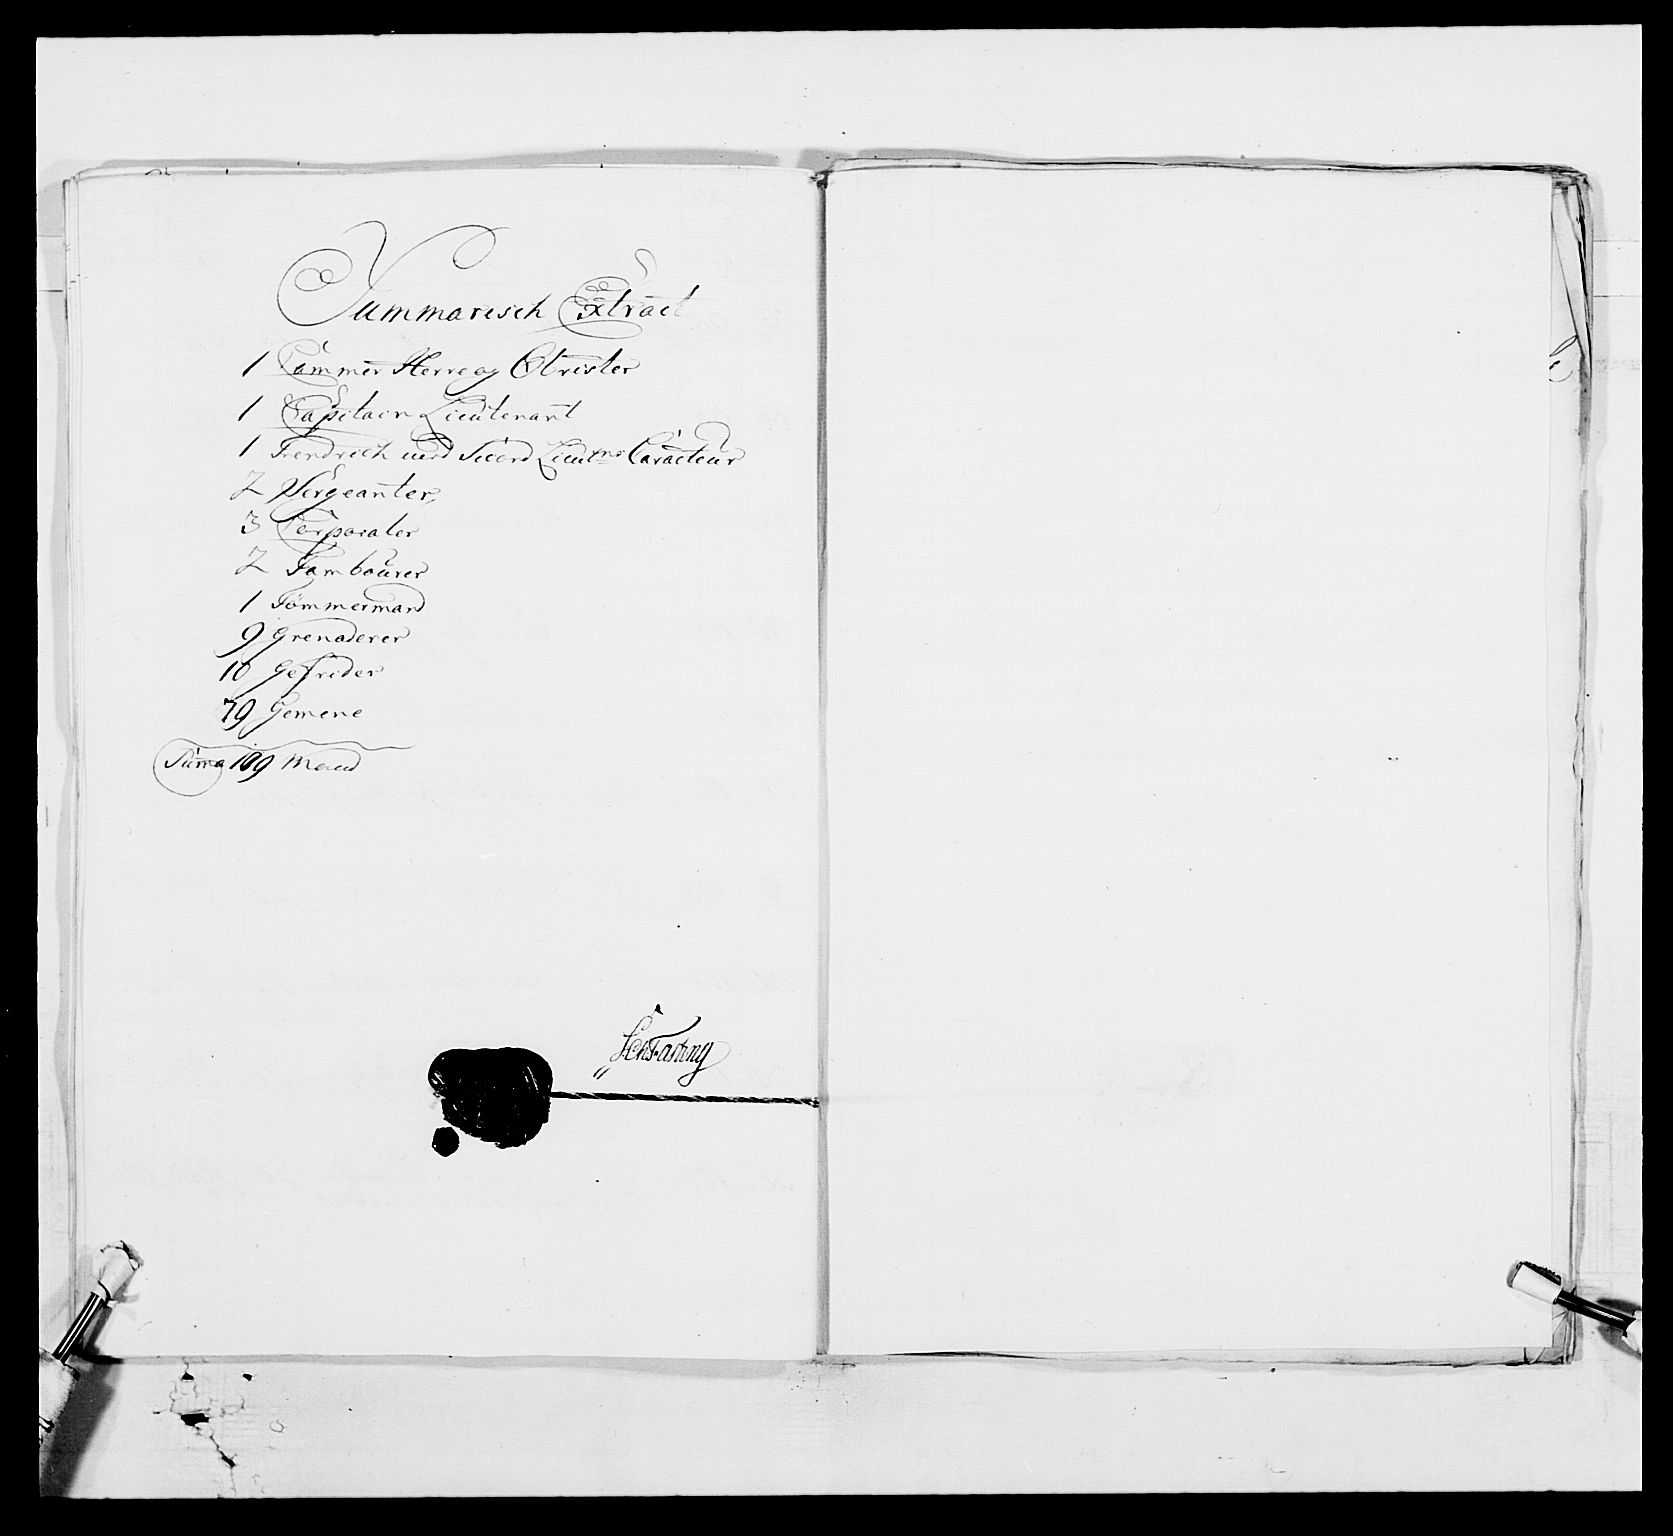 Summarisch Extract
1 Cammer Herre og Obrister
1 Capitain Lieutenant
1 Fendrich med Secord Lieutns Caracteur
2 Sergeanter
3 Corporaler
2 Tambourer
1 Tömmermand
9 Grenaderer
10 Gefrider
79 Gemene
Suma 109 Mand